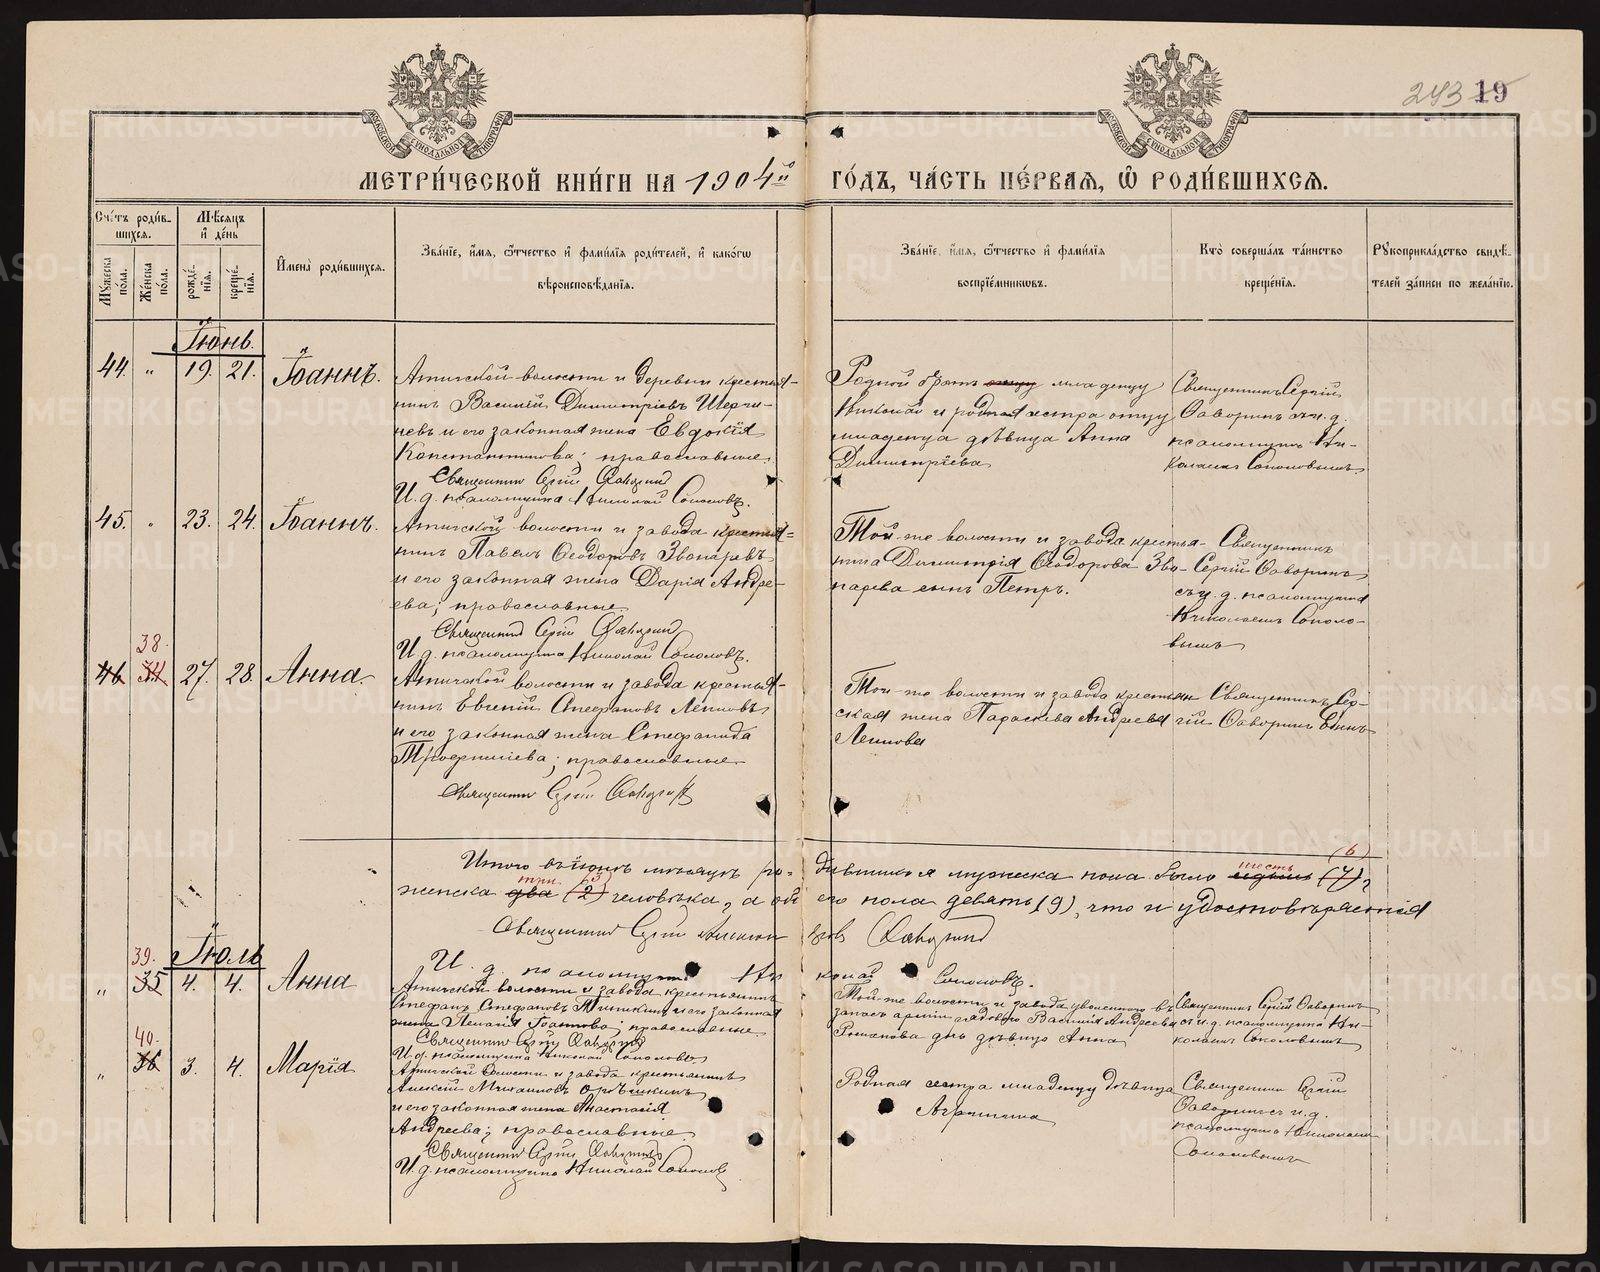 243 19
МЕТРИ́ЧЕСКОЙ КНИ́ГИ НА 1904й ГО́ДЪ, ЧА́СТЬ ПЕ́РВАѦ, Ѡ РОДИ́ВШИХСѦ.
Сче́тъ роди́вшихся.
Мꙋ́жеска по́ла.
Же́нска по́ла.
Мѣ́сяцъ и҆ де́нь
рожде́нїя.
креще́нїя.
И҆мена̀ роди́вшихся.
Зва́нїе, и҆́мя, ѻ҆́тчество и҆ фами́лїя роди́телей, и҆ како́гѡ вѣроисповѣ́данїя.
Зва́нїе, и҆́мя, ѻ҆́тчество и҆ фами́лїя воспрїе́мникѡвъ.
Кто̀ соверша́лъ та́инство креще́нїя.
Рꙋкоприкла́дство свидѣ́телей за́писи по жела́нїю.
Іюнь.
44. „ 19. 21. Іоаннъ.
Ачитской волости и деревни крестья-
нинъ Василій Димитріевъ
и его законная жена Евдокія
Константинова; православные.
Священникъ Сергій
И. д. псаломщика Николай Соколовъ.
Родной братъ младенцу
Николай и родная сестра отцу
младенца дѣвица Анна
Димитріева
Священникъ Сергій
съ и. д.
псаломщика Ни-
колаемъ Соколовымъ
45. „ 23. 24. Іоаннъ.
Ачитской волости и завода крестья-
нинъ Павелъ Ѳеодоровъ Звонаревъ
и его законная жена Дарія Андре-
ева; православные
Священникъ Сергій
И. д. псаломщика Николай Соколовъ.
Той-же волости и завода крестья-
нина Димитрія Ѳеодорова Зво-
нарева сынъ Петръ.
Священникъ
Сергій
съ и. д. псаломщика
Николаемъ Соколо-
вымъ
38.
46 34 27. 28. Анна
Ачитской волости и завода крестья-
нинъ Евгеній Стефановъ
и его законная жена Стефанида
православные
Священникъ Сергій
Той-же волости и завода крестьян
ская жена Параскева Андреева
Священникъ Сер-
гій
Итого въ іюнѣ мѣсяцѣ ро- дившихся мужеска пола было шесть седмь (7) (6),
женска три два (2) (3) человѣка, а обо его пола девять (9), что и удостовѣряется
Священникъ Сергій
И. д. псаломщика Ни колай Соколовъ.
Іюль
39.
„ 35 4. 4. Анна
Ачитской волости и завода крестьянинъ
Стефанъ Стефановъ и его законная
жена Пелагія Іоаннова; православные
Священникъ Сергій
И. д. псаломщика Николай Соколовъ
Той-же волости и завода уволеннаго въ
запасъ арміи рядового Василія Андреева
Романова дѣвица Анна
Священникъ Сергій
съ и. д. псаломщика Ни-
колаемъ Соколовымъ
40.
„ 36 3. 4. Марія
Ачитской волости и завода крестьянинъ
Алексій Михаиловъ
и его законная жена Анастасія
Андреева; православные
Священникъ Сергій
И. д. псаломщика Николай Соколов
Родная сестра младенцу дѣвица
Агриппина
Священникъ Сергій
съ и. д.
псаломщика Николаемъ
Соколовымъ
METRIKI.GASO-URAL.RU